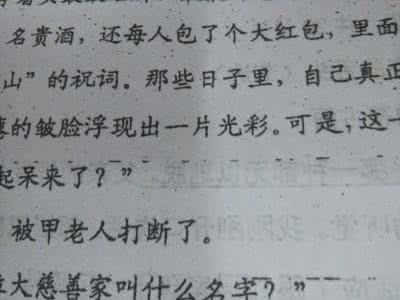 名贵酒，还每人包了个大红包，里面
山”的祝词。那些日子里，自己真正
的皱脸浮现出一片光彩。可是，这一
起呆来了？”
被甲老人打断了。
大慈善家叫什么名字？”